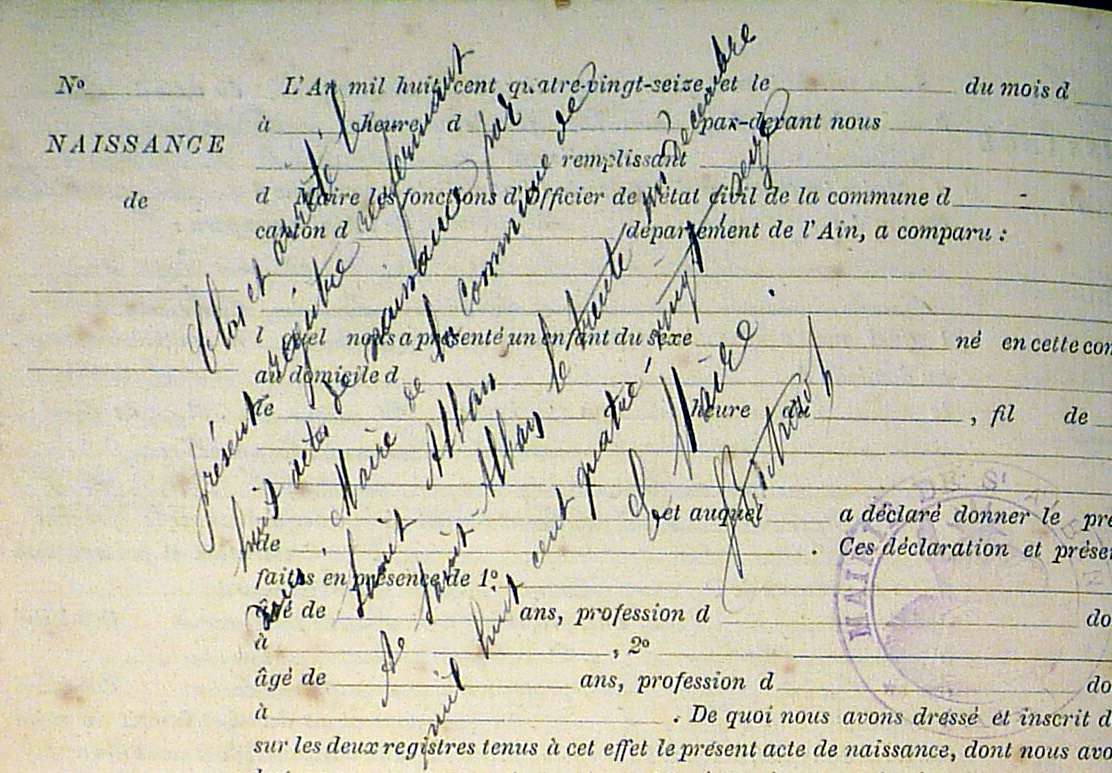 No L'An mil huit cent quatre-vingt-seize, et le du mois d
à heure d par-devant nous
NAISSANCE remplissant
de d Maire les fonctions d'Officier de l'état civil de la commune d
canton d département de l'Ain, a comparu :
l quel nous a présenté un enfant du sexe né en cette com
au domicile d
le à heure du , fil de
et auquel a déclaré donner le pré
de . Ces déclaration et présen
faites en présence de 1º
âgé de ans, profession d do
à , 2º
âgé de ans, profession d do
à . De quoi nous avons dressé et inscrit d
sur les deux registres tenus à cet effet le présent acte de naissance, dont nous avo
Clos et arrêté le
présent régistre renfermant
huit actes de naissances par
nous, Maire de la Commune de
Saint Alban
A Saint-Alban le trente un décembre
mil huit cent quatre vingt seize
Le Maire
MAIRIE DE St ALBAN